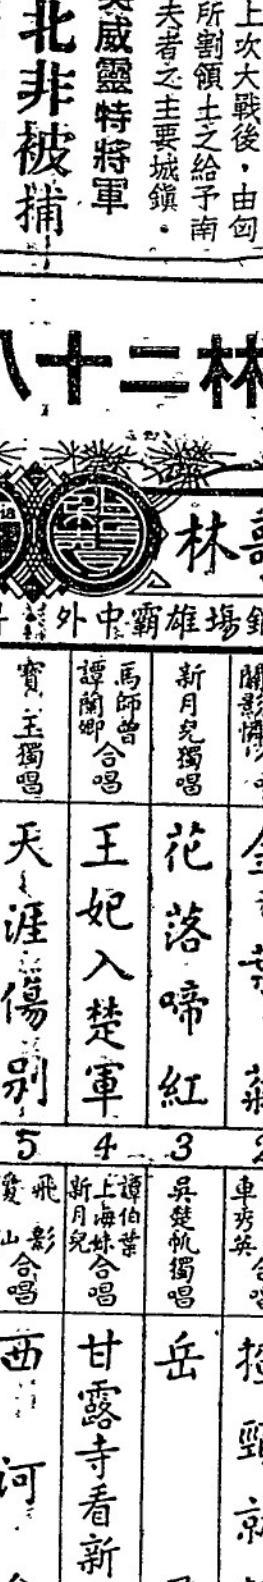 上次大戰後，由匈
所割領土之給予南
夫者之主要城鎮。
威靈特將軍
北非被捕
八十二林
林
外中霸雄場銷
新月兒獨唱
花落啼紅
馬師曾
譚蘭卿
合唱
王妃入楚軍
寶玉獨唱
天涯傷別
3
4
5
車秀英
吳楚帆獨唱
岳
譚伯葉
上海妹
新月兒
合唱
甘露寺看新
飛影
愛山
合唱
西河